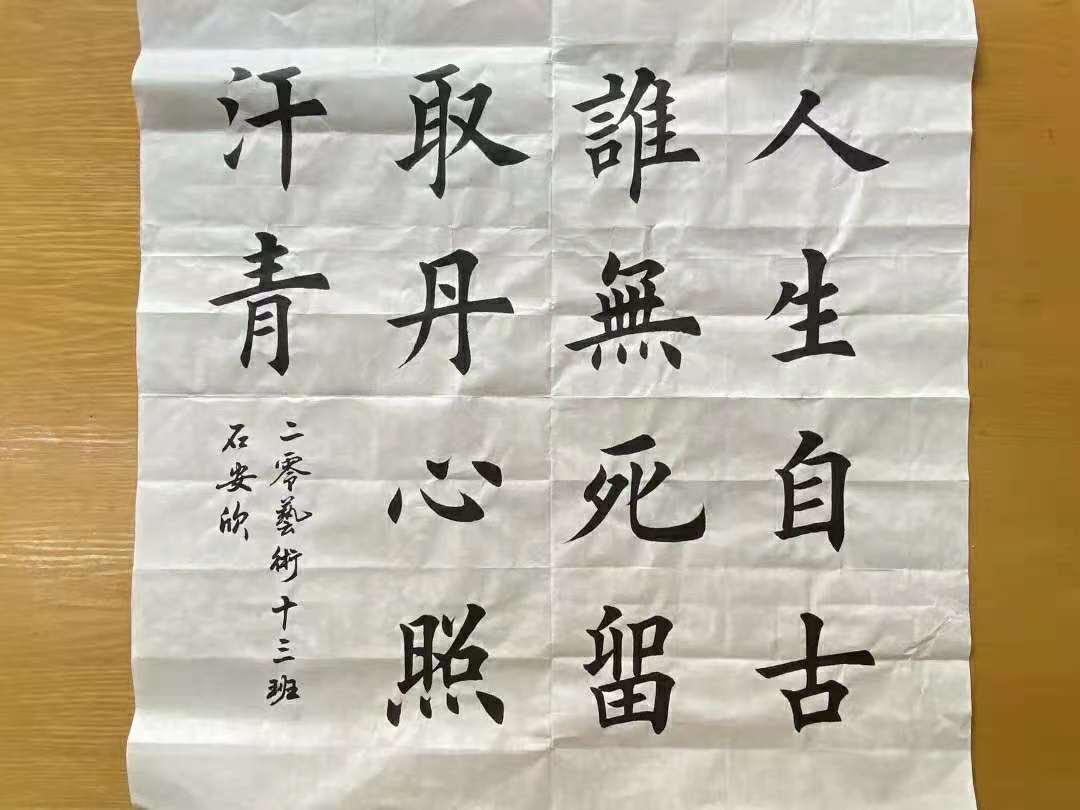 人生自古
誰無死留
取丹心照
汗青
二零藝術十三班
石安欣